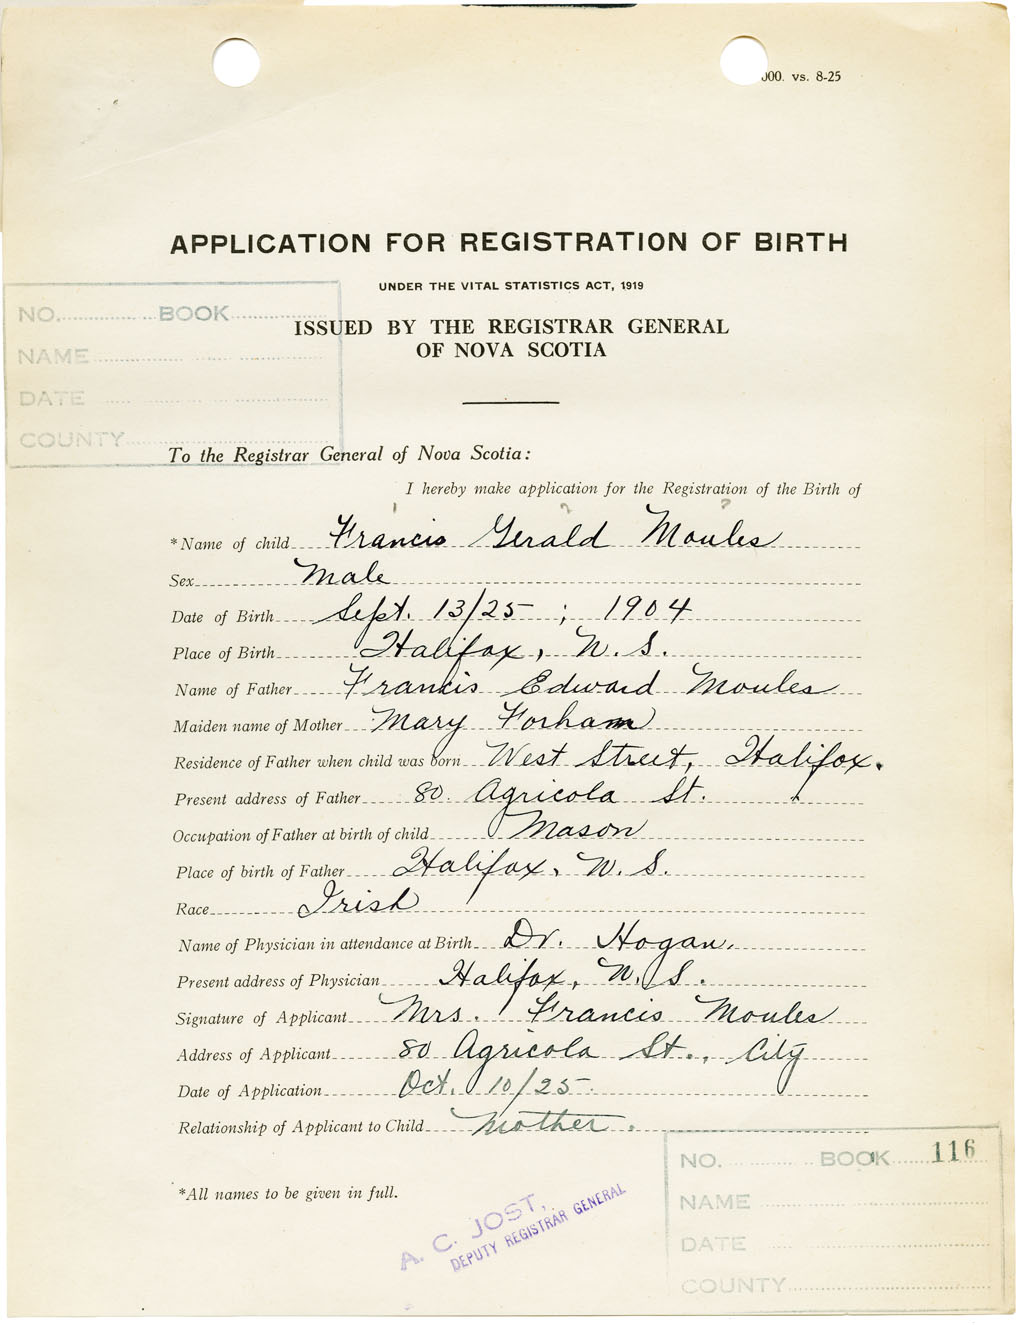 000. vs. 8-25
APPLICATION FOR REGISTRATION OF BIRTH
UNDER THE VITAL STATISTICS ACT, 1919
ISSUED BY THE REGISTRAR GENERAL
OF NOVA SCOTIA
NO. BOOK
NAME
DATE
COUNTY
To the Registrar General of Nova Scotia:
I hereby make application for the Registration of the Birth of
*Name of child Francis Gerald Moules
Sex Male
Date of Birth Sept. 13/25 ; 1904
Place of Birth Halifax, N. S.
Name of Father Francis Edward Moules
Maiden name of Mother Mary Forham
Residence of Father when child was born West Street, Halifax.
Present address of Father 80 Agricola St.
Occupation of Father at birth of child Mason
Place of birth of Father Halifax, N. S.
Race Irish
Name of Physician in attendance at Birth Dr. Hogan.
Present address of Physician Halifax, N. S.
Signature of Applicant Mrs. Francis Moules
Address of Applicant 80 Agricola St., City
Date of Application Oct. 10/25.
Relationship of Applicant to Child Mother.
*All names to be given in full.
A. C. JOST,
DEPUTY REGISTRAR GENERAL
NO. BOOK 116
NAME
DATE
COUNTY